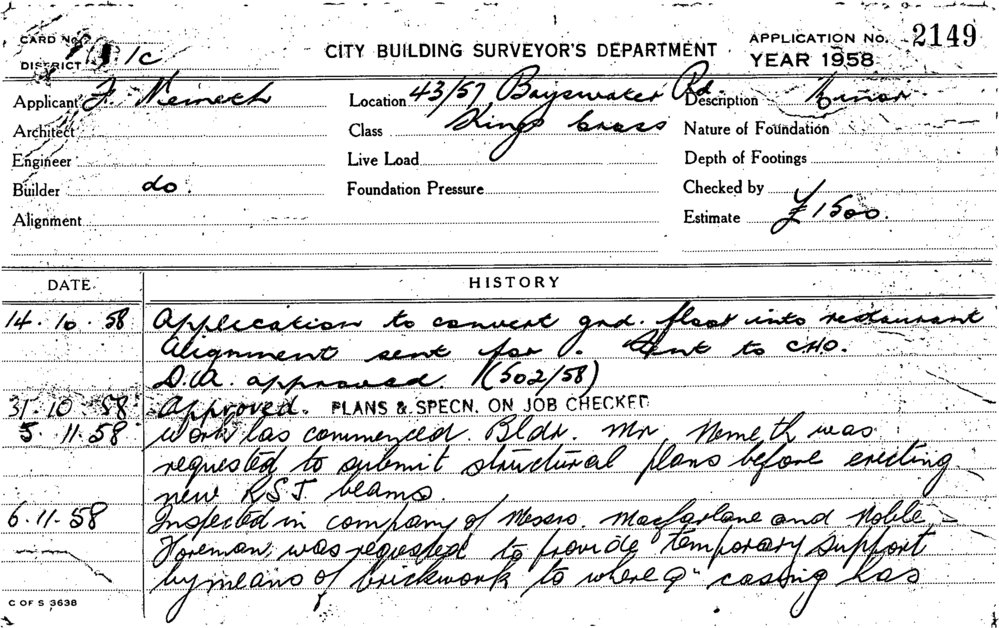 CARD No.
DISTRICT 1c
CITY BUILDING SURVEYOR'S DEPARTMENT
APPLICATION No. 2149
YEAR 1958
Applicant F. Nemeth
Location 43/57 Bayswater Rd.
Description Minor
Architect
Class Kings Cross
Nature of Foundation
Engineer
Live Load
Depth of Footings
Builder do.
Foundation Pressure
Checked by
Alignment
Estimate £1500.
DATE
HISTORY
14.10.58 Application to convert grd. floor into restaurant
Alignment sent for. Sent to C.H.O.
D.A. approved (502/58)
31.10.58 Approved. PLANS & SPECN. ON JOB CHECKED
5.11.58 Work has commenced. Bldr. Mr. Nemeth was
requested to submit structural plans before erecting
new R.S.J. beams.
6.11.58 Inspected in company of Messrs. Macfarlane and Noble.
Foreman, was requested to provide temporary support
by means of brickwork to where 9" casing has
C OF S 3638